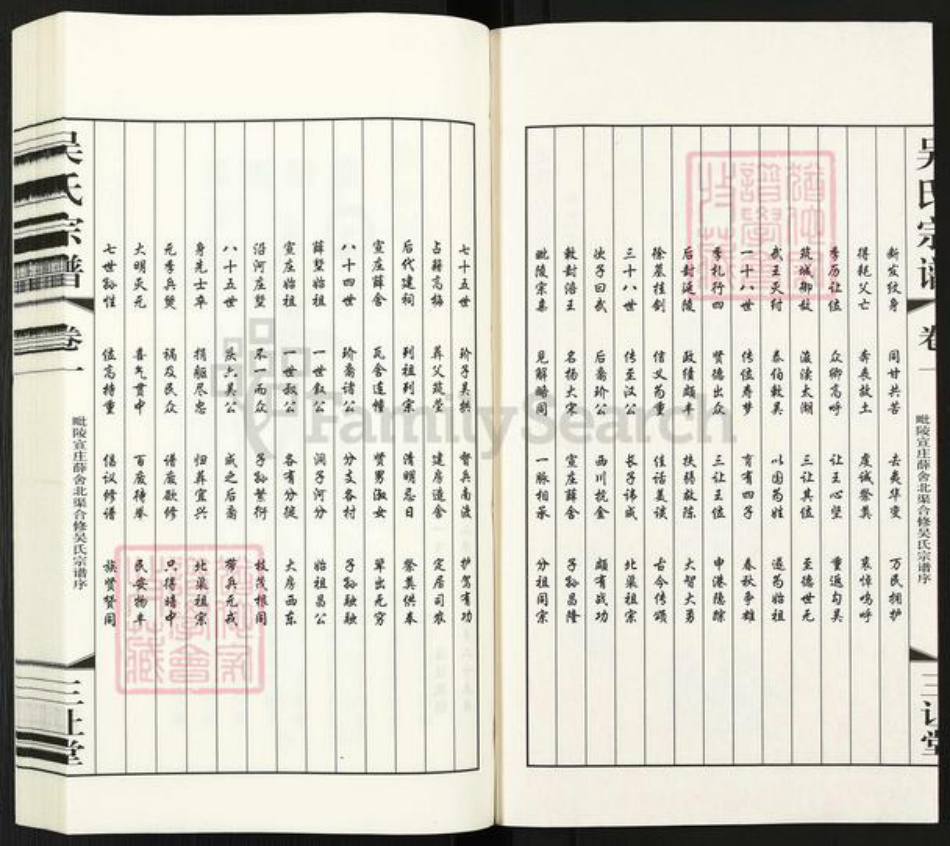 吴氏宗谱
卷一
毗陵宣庄薛舍北渠合修吴氏宗谱序
三让堂
断发纹身 同甘共苦 去夷华变 万民拥护
得耗父亡 奔丧故土 虔诚祭奠 哀悼呜呼
季历让位 众卿高呼 让王心坚 重返勾吴
筑城御敌 浚渎太湖 三让其位 至德世无
武王灭纣 泰伯敕吴 以国为姓 遂为始祖
一十八世 传位寿梦 育有四子 春秋争雄
季札行四 贤德出众 三让王位 申港隐踪
后封延陵 政绩颇丰 扶弱救陈 大智大勇
徐墓挂剑 信义为重 佳话美谈 古今传颂
三十八世 传至汉公 长子讳咸 北渠祖宗
次子曰武 后裔玠公 西川抗金 颇有战功
敕封涪王 名扬大宋 宣庄薛舍 子孙昌隆
毗陵宗集 见解略同 一脉相承 分祖同宗
七十五世 玠子吴拱 督兵南渡 护驾有功
占籍高梅 葬父筑茔 建房造舍 定居司农
后代建祠 列祖列宗 清明忌日 祭奠供奉
宣庄薛舍 瓦舍连幢 贤男淑女 辈出无穷
八十四世 玠裔诸公 分支各村 子孙融融
薛墅始祖 一世叙公 涧子河分 始祖昌公
宣庄始祖 一世叔公 各有分徙 大房西东
沿河庄墅 不一而众 子孙繁衍 枝茂根同
八十五世 庆六吴公 咸之后裔 带兵元戎
身先士卒 捐躯尽忠 归葬宜兴 北渠祖宗
元季兵燹 祸及民众 谱废欲修 只得暗中
大明灭元 喜气贯中 百废待举 民安物丰
七世孙性 位高持重 倡议修谱 族贤赞同
吴氏宗谱
卷一
毗陵宣庄薛舍北渠合修吴氏宗谱序
三让堂
FamilySearch